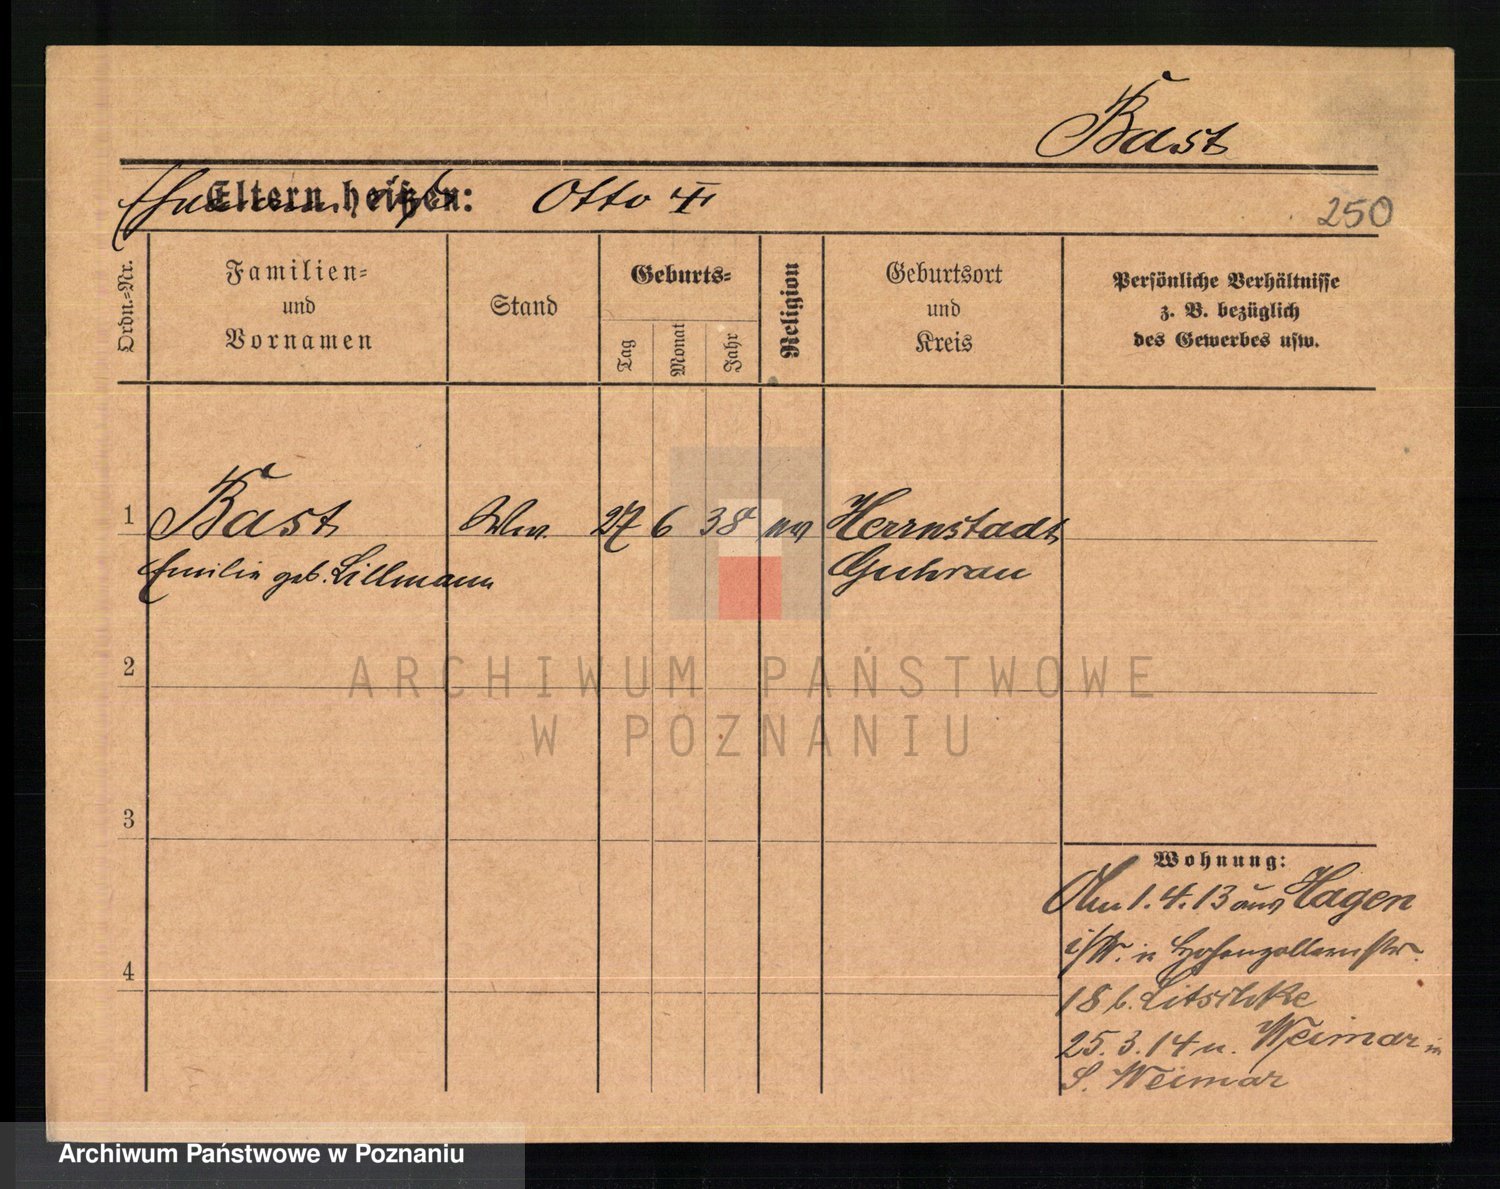 Bast
Eltern heißen: Otto
250
Ordn.=Nr.
Familien=
und
Vornamen
Stand
Geburts=
Tag
Monat
Jahr
Religion
Geburtsort
und
Kreis
Persönliche Verhältnisse
z. B. bezüglich
des Gewerbes usw.
1 Bast Ww. 27 6 38 ev Herrnstadt
Emilie geb. Lillmann Guhrau
2
ARCHIWUM PAŃSTWOWE
W POZNANIU
3
Wohnung:
Am 1.4.13 aus Hagen
i/W. n Hohenzollernstr.
18 b. Litschke
25.3.14 n. Weimar in
S. Weimar
4
Archiwum Państwowe w Poznaniu